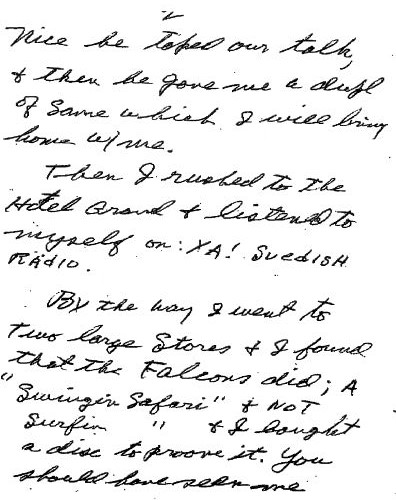 2
Nice he taped our talk,
& then he gave me a dupl
of same which I will bring
home w/me.
Then I rushed to the
Hotel Grand & listened to
myself on: YA! SwedISH
RAdio.
By the way I went to
Two large Stores & I found
that the Falcons did; A
"Swingin Safari" & NOT
Surfin " & I bought
a disc to proove it. You
should have seen me